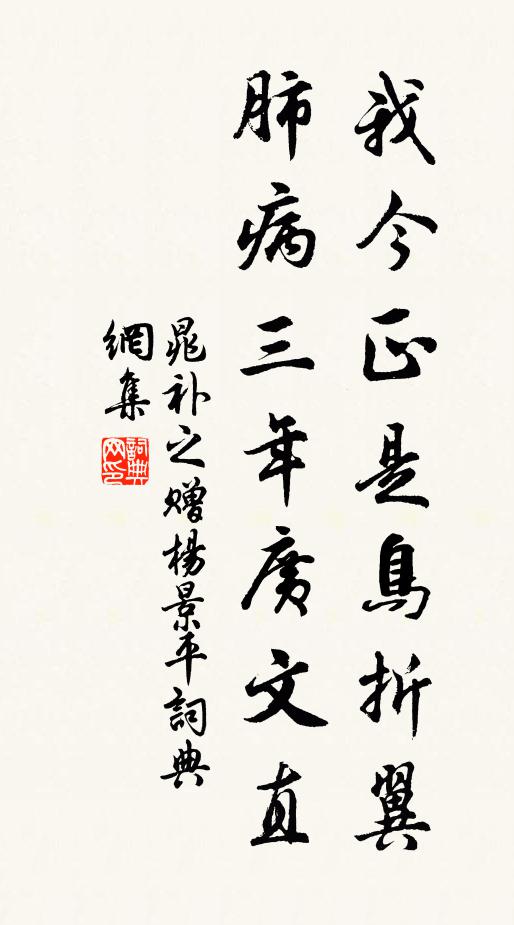 我今正是鳥折翼
肺病三年廣文直
晁补之赠楊景平詞典
網集
詞典
网印